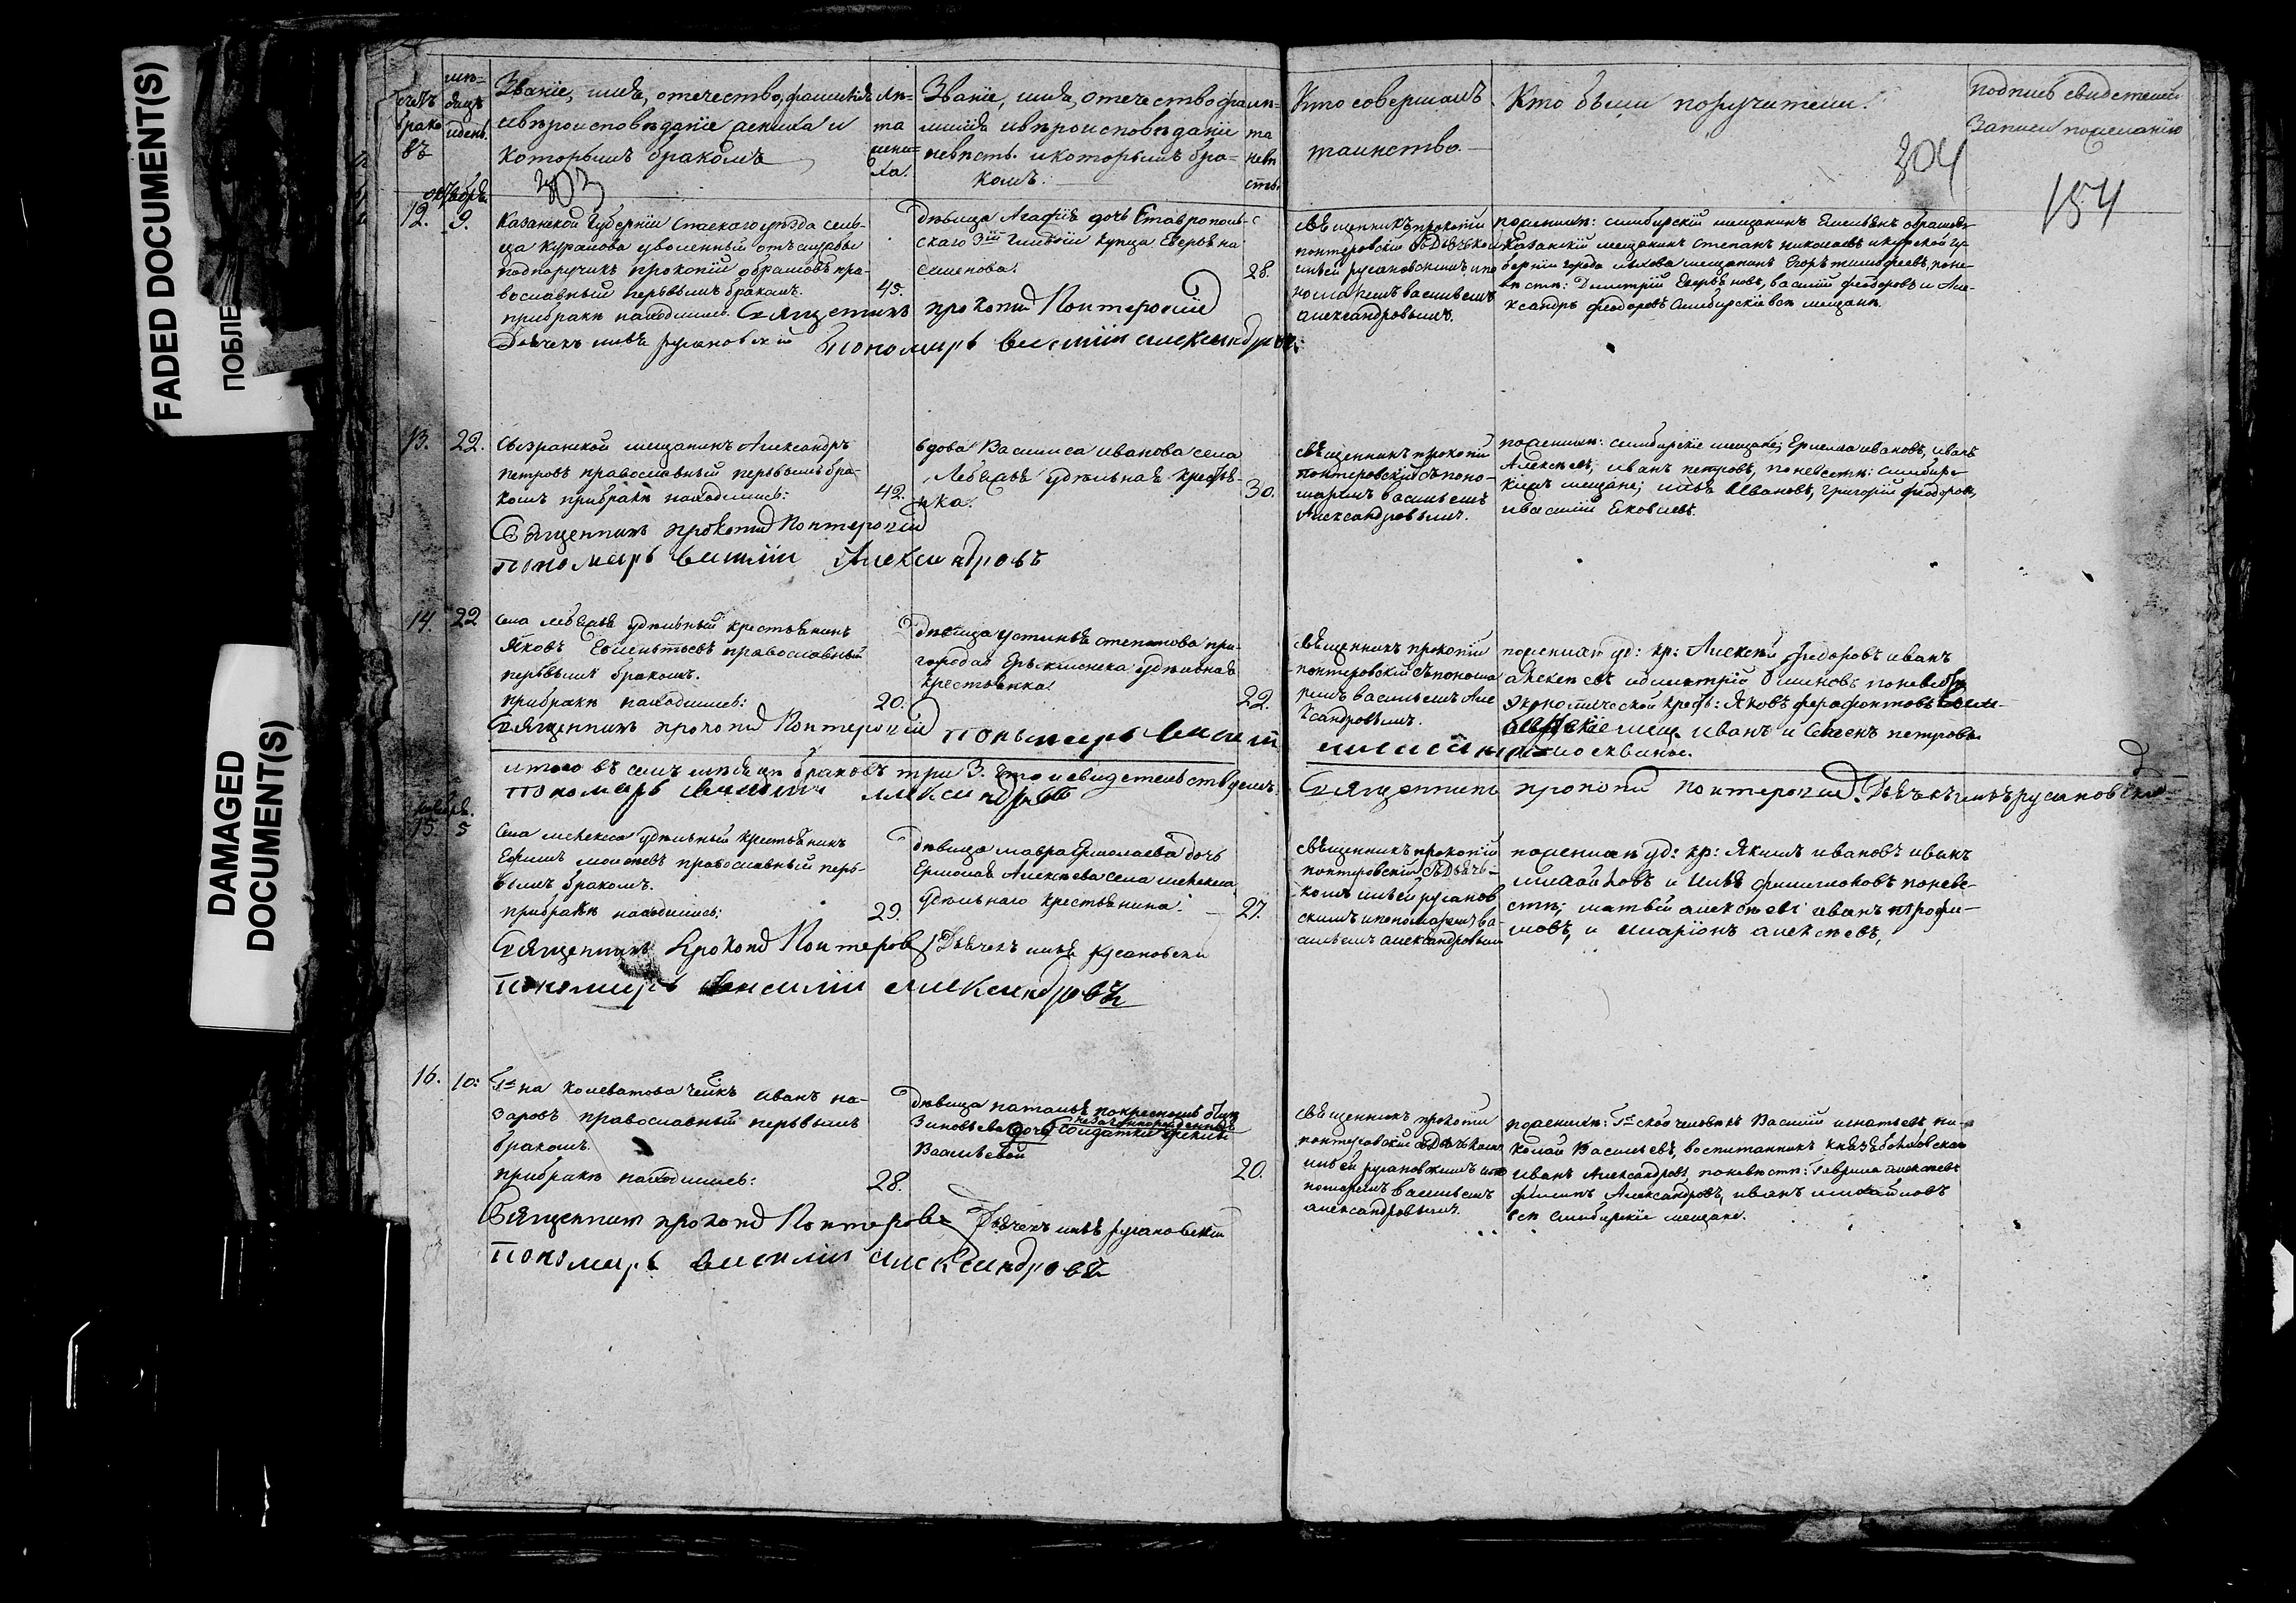 FADED DOCUMENT(S)
ПОБЛЕ
DAMAGED
DOCUMENT(S)
счетъ
брако
въ
мѣ-
сяцъ
и день
Званіе, имя, отечество, фамилія
и вѣроисповѣданіе жениха и
которымъ бракомъ
лѣ-
та
жени-
ха.
Званіе, имя, отечество фа
милія и вѣроисповѣданіе
невѣсты и которымъ бра-
комъ.
лѣ-
та
невѣ
сты
Кто совершалъ
таинство.
Кто были поручители.
подпись свидетелей
записи по желанію
303
304
154
октябрь
12. 9.
Казанской Губерніи Спаскаго уѣзда сель-
ца Куралова уволенный отъ службы
подпоручикъ прокопій абрамовъ пра-
вославный первымъ бракомъ.
при бракѣ находились. Священникъ прокопій Понтеровскій
45.
Дьячекъ илья русановскій Пономарь василій александровъ
Дѣвица Агафія дочь Ставрополь-
скаго 3й Гильдіи купца
семенова.
28.
священникъ прокопій
понтеровскій съ Дьячко
ильей русановскимъ и по
номаремъ васильемъ
александровымъ.
по женихѣ: симбирскій мещанинъ Емельянъ абрамовъ
казанскій мещанинъ степанъ николаевъ и курской гу
берніи города льгова мещанинъ Егоръ тимофеевъ, поне-
вѣстѣ: Дмитрій василій феодоровъ и Але-
ксандръ феодоровъ Симбирскіе всѣ мещане.
13. 22.
Сызранской мещанинъ Александръ
петровъ православный первымъ бра-
комъ при бракѣ находились:
42.
Священникъ прокопій Понтеровскій
пономарь василій Александровъ
вдова Васильса иванова села
удѣльная кресть-
янка.
30.
священникъ прокопій
понтеровскій съ поно-
маремъ васильемъ
Александровымъ.
по женихѣ: симбирскіе мещане, Ермолай ивановъ, иванъ
Алексѣевъ, иванъ петровъ, по невестѣ: симбирс-
кіе мещане; илья Ивановъ, григорій феодоровъ,
и василій Яковлевъ.
14. 22
села удѣльный крестьянинъ
Яковъ православный
первымъ бракомъ.
при бракѣ находились:
20.
Священникъ прокопій Понтеровскій пономарь василій
Дѣвица устинья степанова при-
города удѣльная
крестьянка.
22.
священникъ прокопій
понтеровскій съ понома
ремъ васильемъ Але
ксандровымъ.
по женихѣ уд: кр: Алексѣй федоровъ иванъ
Алексѣевъ и дмитрій по невѣстѣ
экономической крест: Яковъ
мещ иванъ и петровы
итого въ семъ мѣсяцѣ браковъ три 3. Въ томъ свидетельствуемъ:
Пономарь василій александровъ
Священникъ прокопій понтеровскій. Дьячекъ илья русановскій
ноябрь.
15. 5
Села удѣльный крестьянинъ
Ефимъ православный пер-
вымъ бракомъ.
при бракѣ находились:
29.
Священникъ прокопій Понтеровск Дьячекъ илья русановскій
Пономарь василій александровъ
Дѣвица мавра Ермолаева дочь
Ермолая Алексѣева села
удѣльнаго крестьянина.
27.
священникъ прокопій
понтеровскій съ Дьяч-
комъ ильей русанов
скимъ и пономаремъ ва
сильемъ александровым
по женихѣ уд: кр: Якимъ ивановъ иванъ
михайловъ и илья филимоновъ по неве-
стѣ; матвей алексѣевъ иванъ трофи-
мовъ, и иларіонъ алексѣевъ,
16. 10:
Гна Колеватова чел:къ иванъ на-
заровъ православный первымъ
бракомъ.
при бракѣ находились:
28.
Священникъ прокопій Понтеров Дьячекъ илья русановскій
Пономарь василій александровъ
Дѣвица наталья по крестномъ отцѣ
незаконнорожденная
Зиновьева дочь солдатки
Васильевой
20.
священникъ прокопій
понтеровскій съ Дьячкомъ
ильей русановскимъ и по
номаремъ васильемъ
александровымъ.
по женихѣ: Гд:ской человѣкъ Василій игнатьевъ, ни-
колай Васильевъ, воспитанникъ князя
иванъ Александровъ, по невѣстѣ: Гаврила алексѣевъ
филипъ Александровъ, иванъ михайловъ
всѣ Симбирскіе мещане.